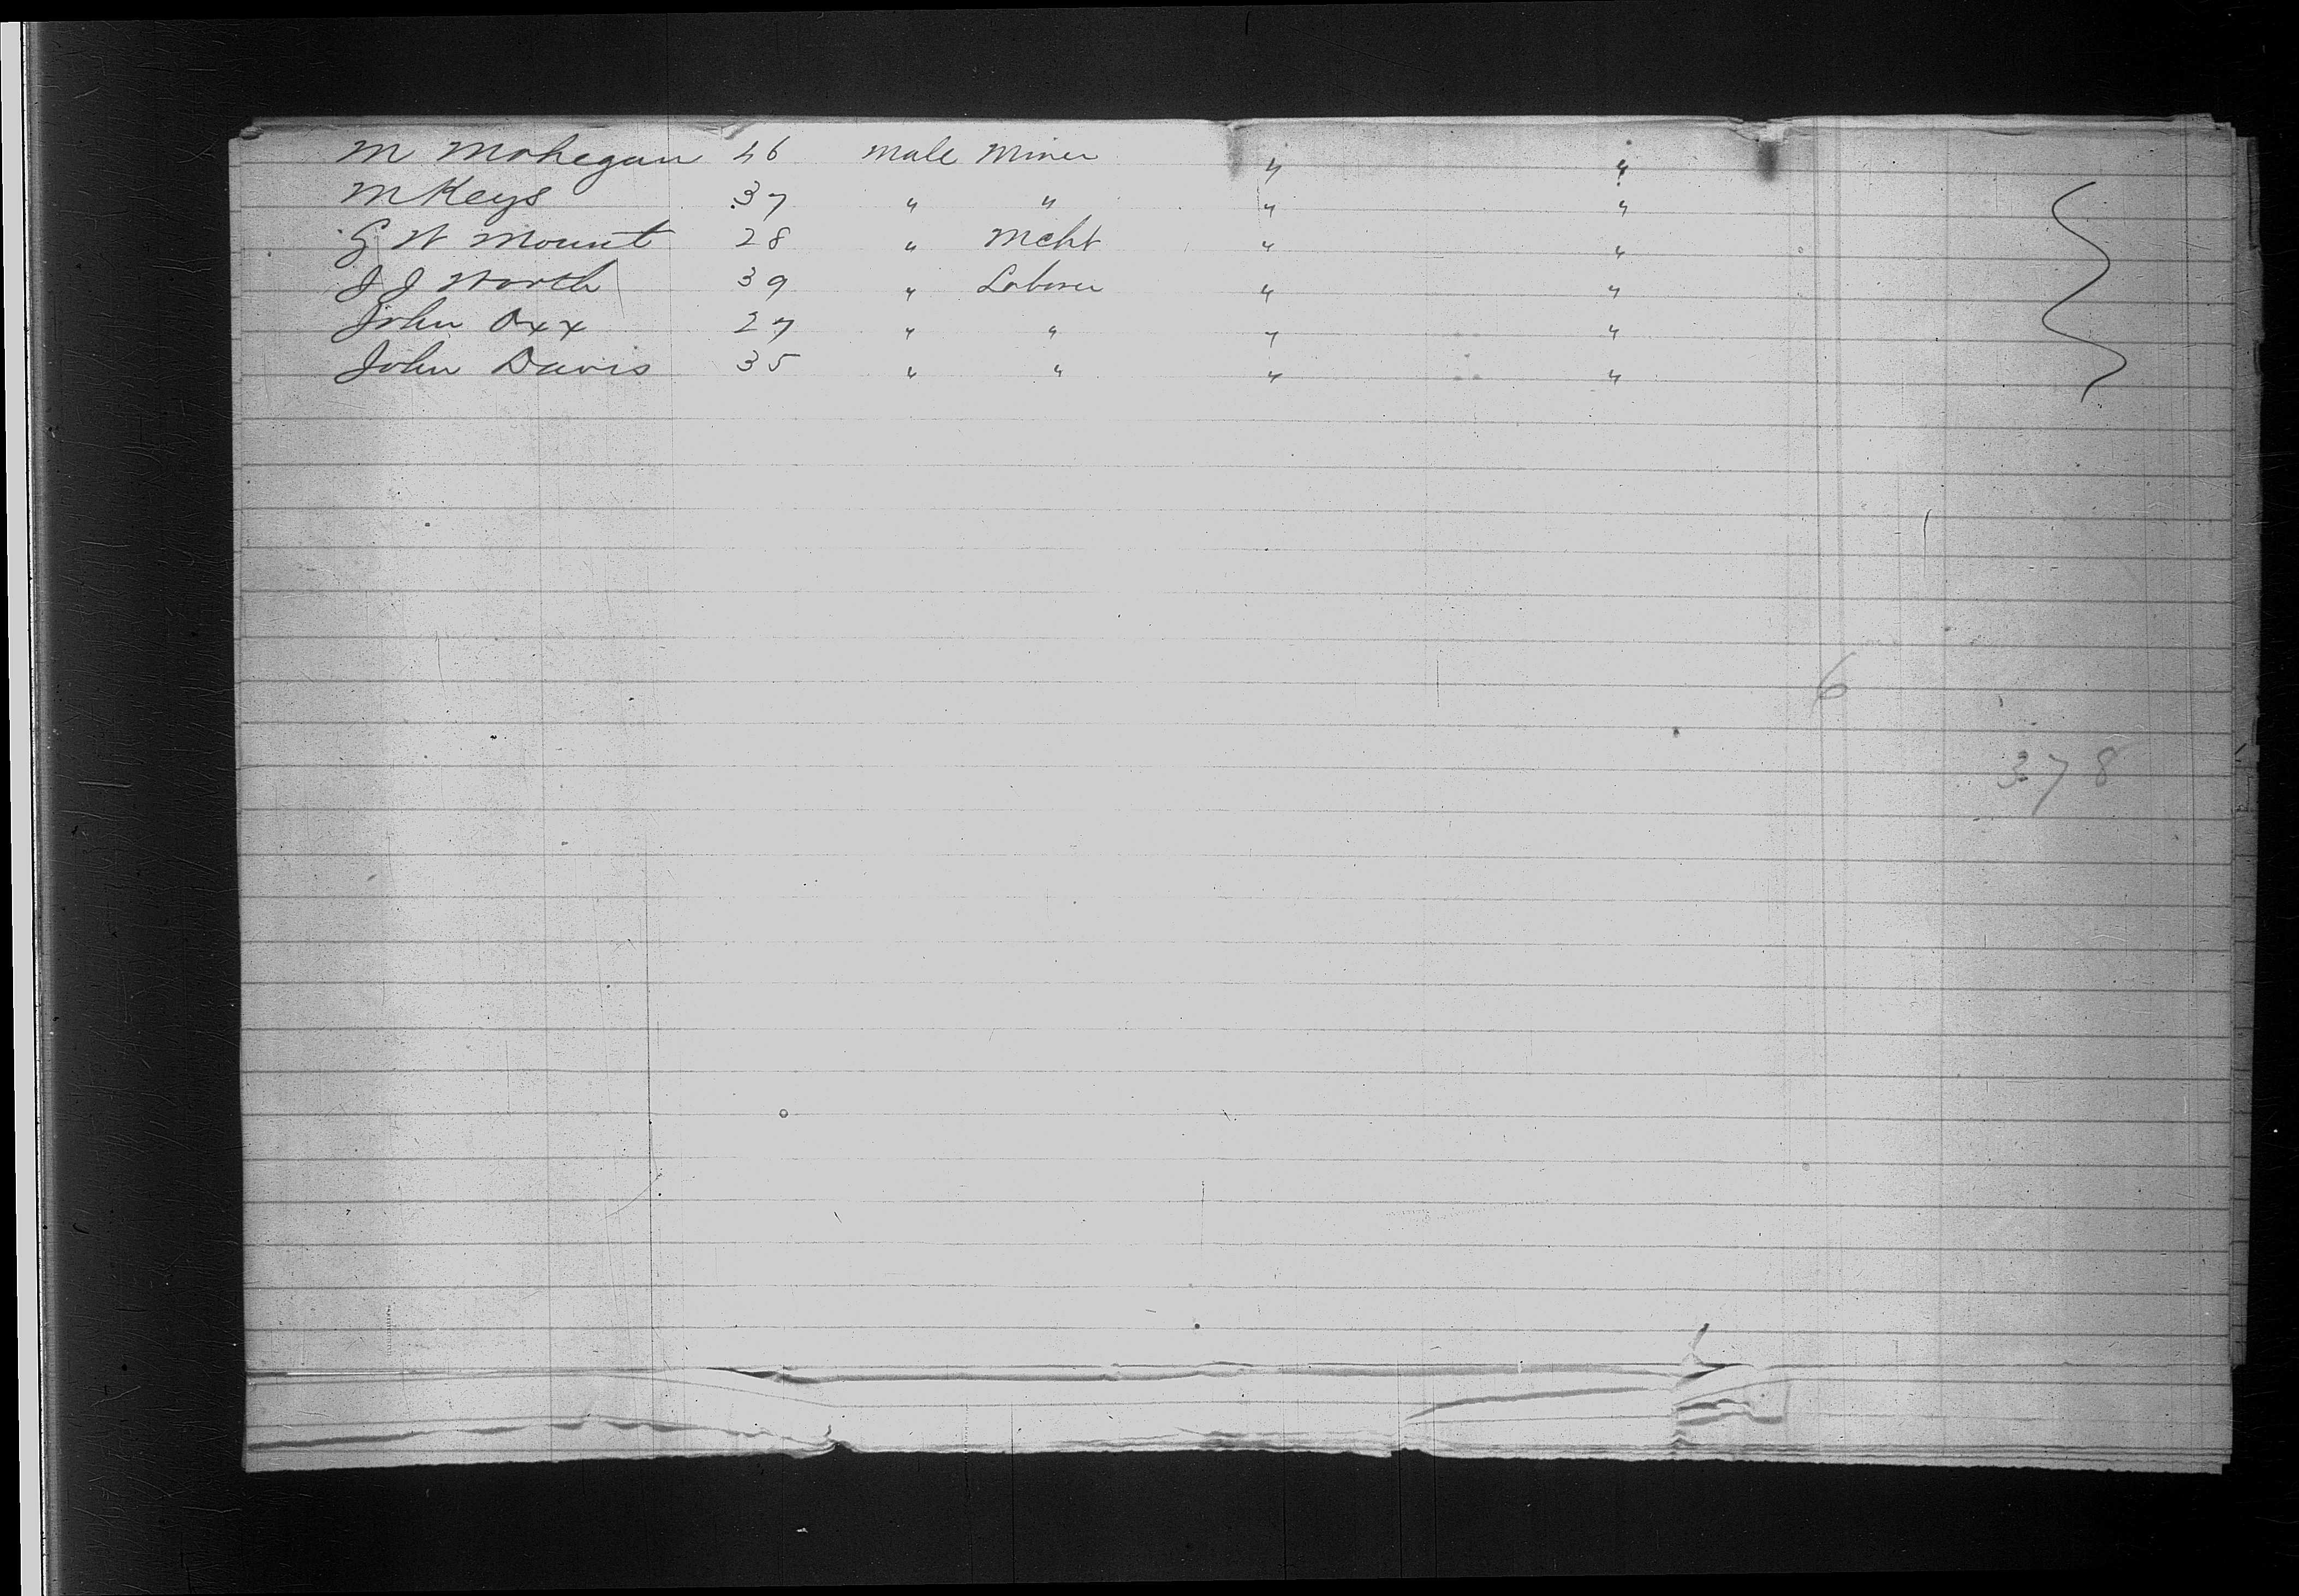 M Mohegan 46 Male Miner " "
M Keys 37 " " " "
G W Mount 28 " Mcht " "
J J North 39 " Laborer " "
John Oxx 27 " " " "
John Davis 35 " " " "
6
378